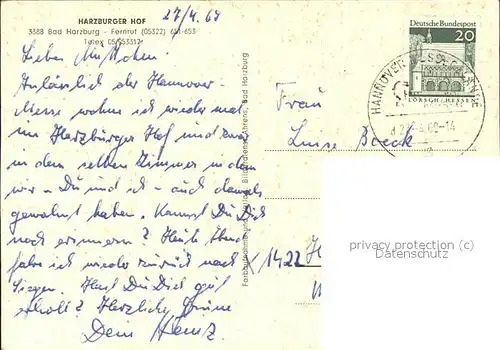 HARZBURGER HOF
3388 Bad Harzburg - Fernruf (05322)
Telex
27/4.69
Anlässlich der Hannover-
Messe wohne ich wieder mal
im Harzburger Hof und zwar
in dem selben Zimmer in dem
wir - Du und ich - auch damals
gewohnt haben. Kannst Du Dich
noch erinnern? Heute Abend
fahre ich wieder zurück nach
Siegen. Hast Du Dich gut
erholt? Herzliche Grüße
Dein Heinz
Bad Harzburg
Frau
Luise Boeck
Deutsche Bundespost
20
LORSCH/HESSEN
HANNOVER
privacy protection (c)
Datenschutz